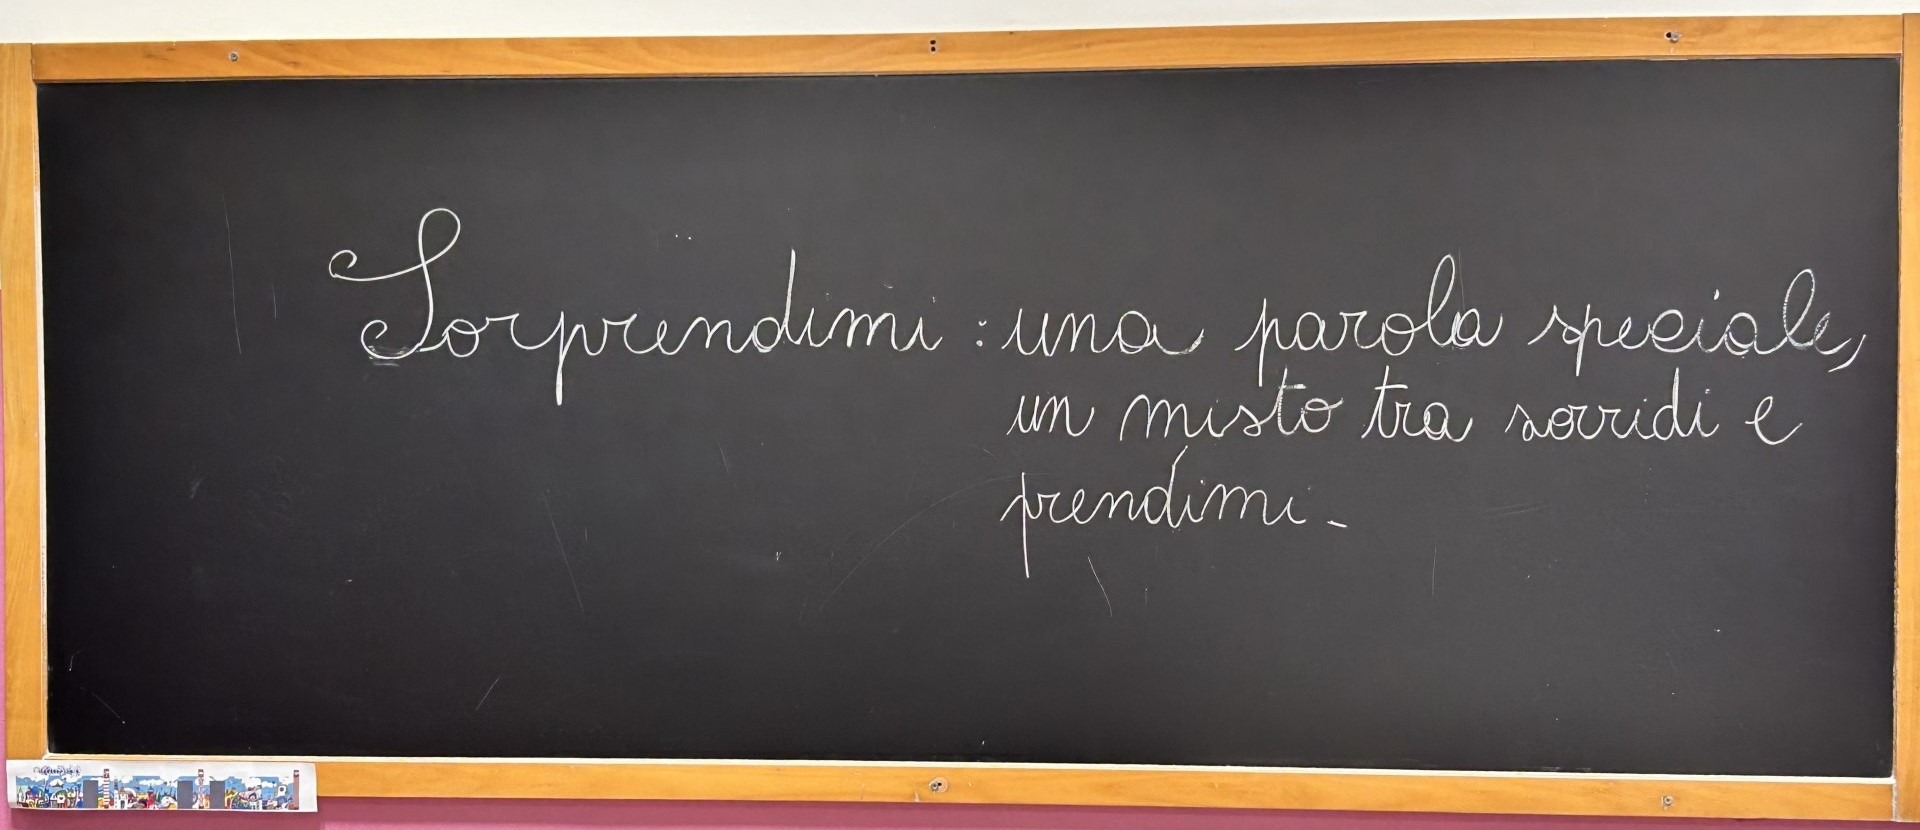 Sorprendimi : una parola speciale,
un misto tra sorridi e
prendimi.